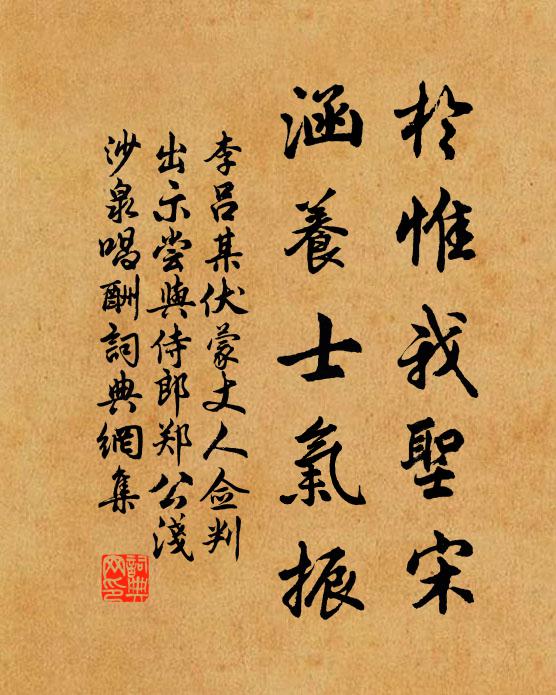 於惟我聖宋
涵養士氣振
李呂某伏蒙丈人佥判
出示尝與侍郎郑公淺
沙泉唱酬詞典網集
詞典网印